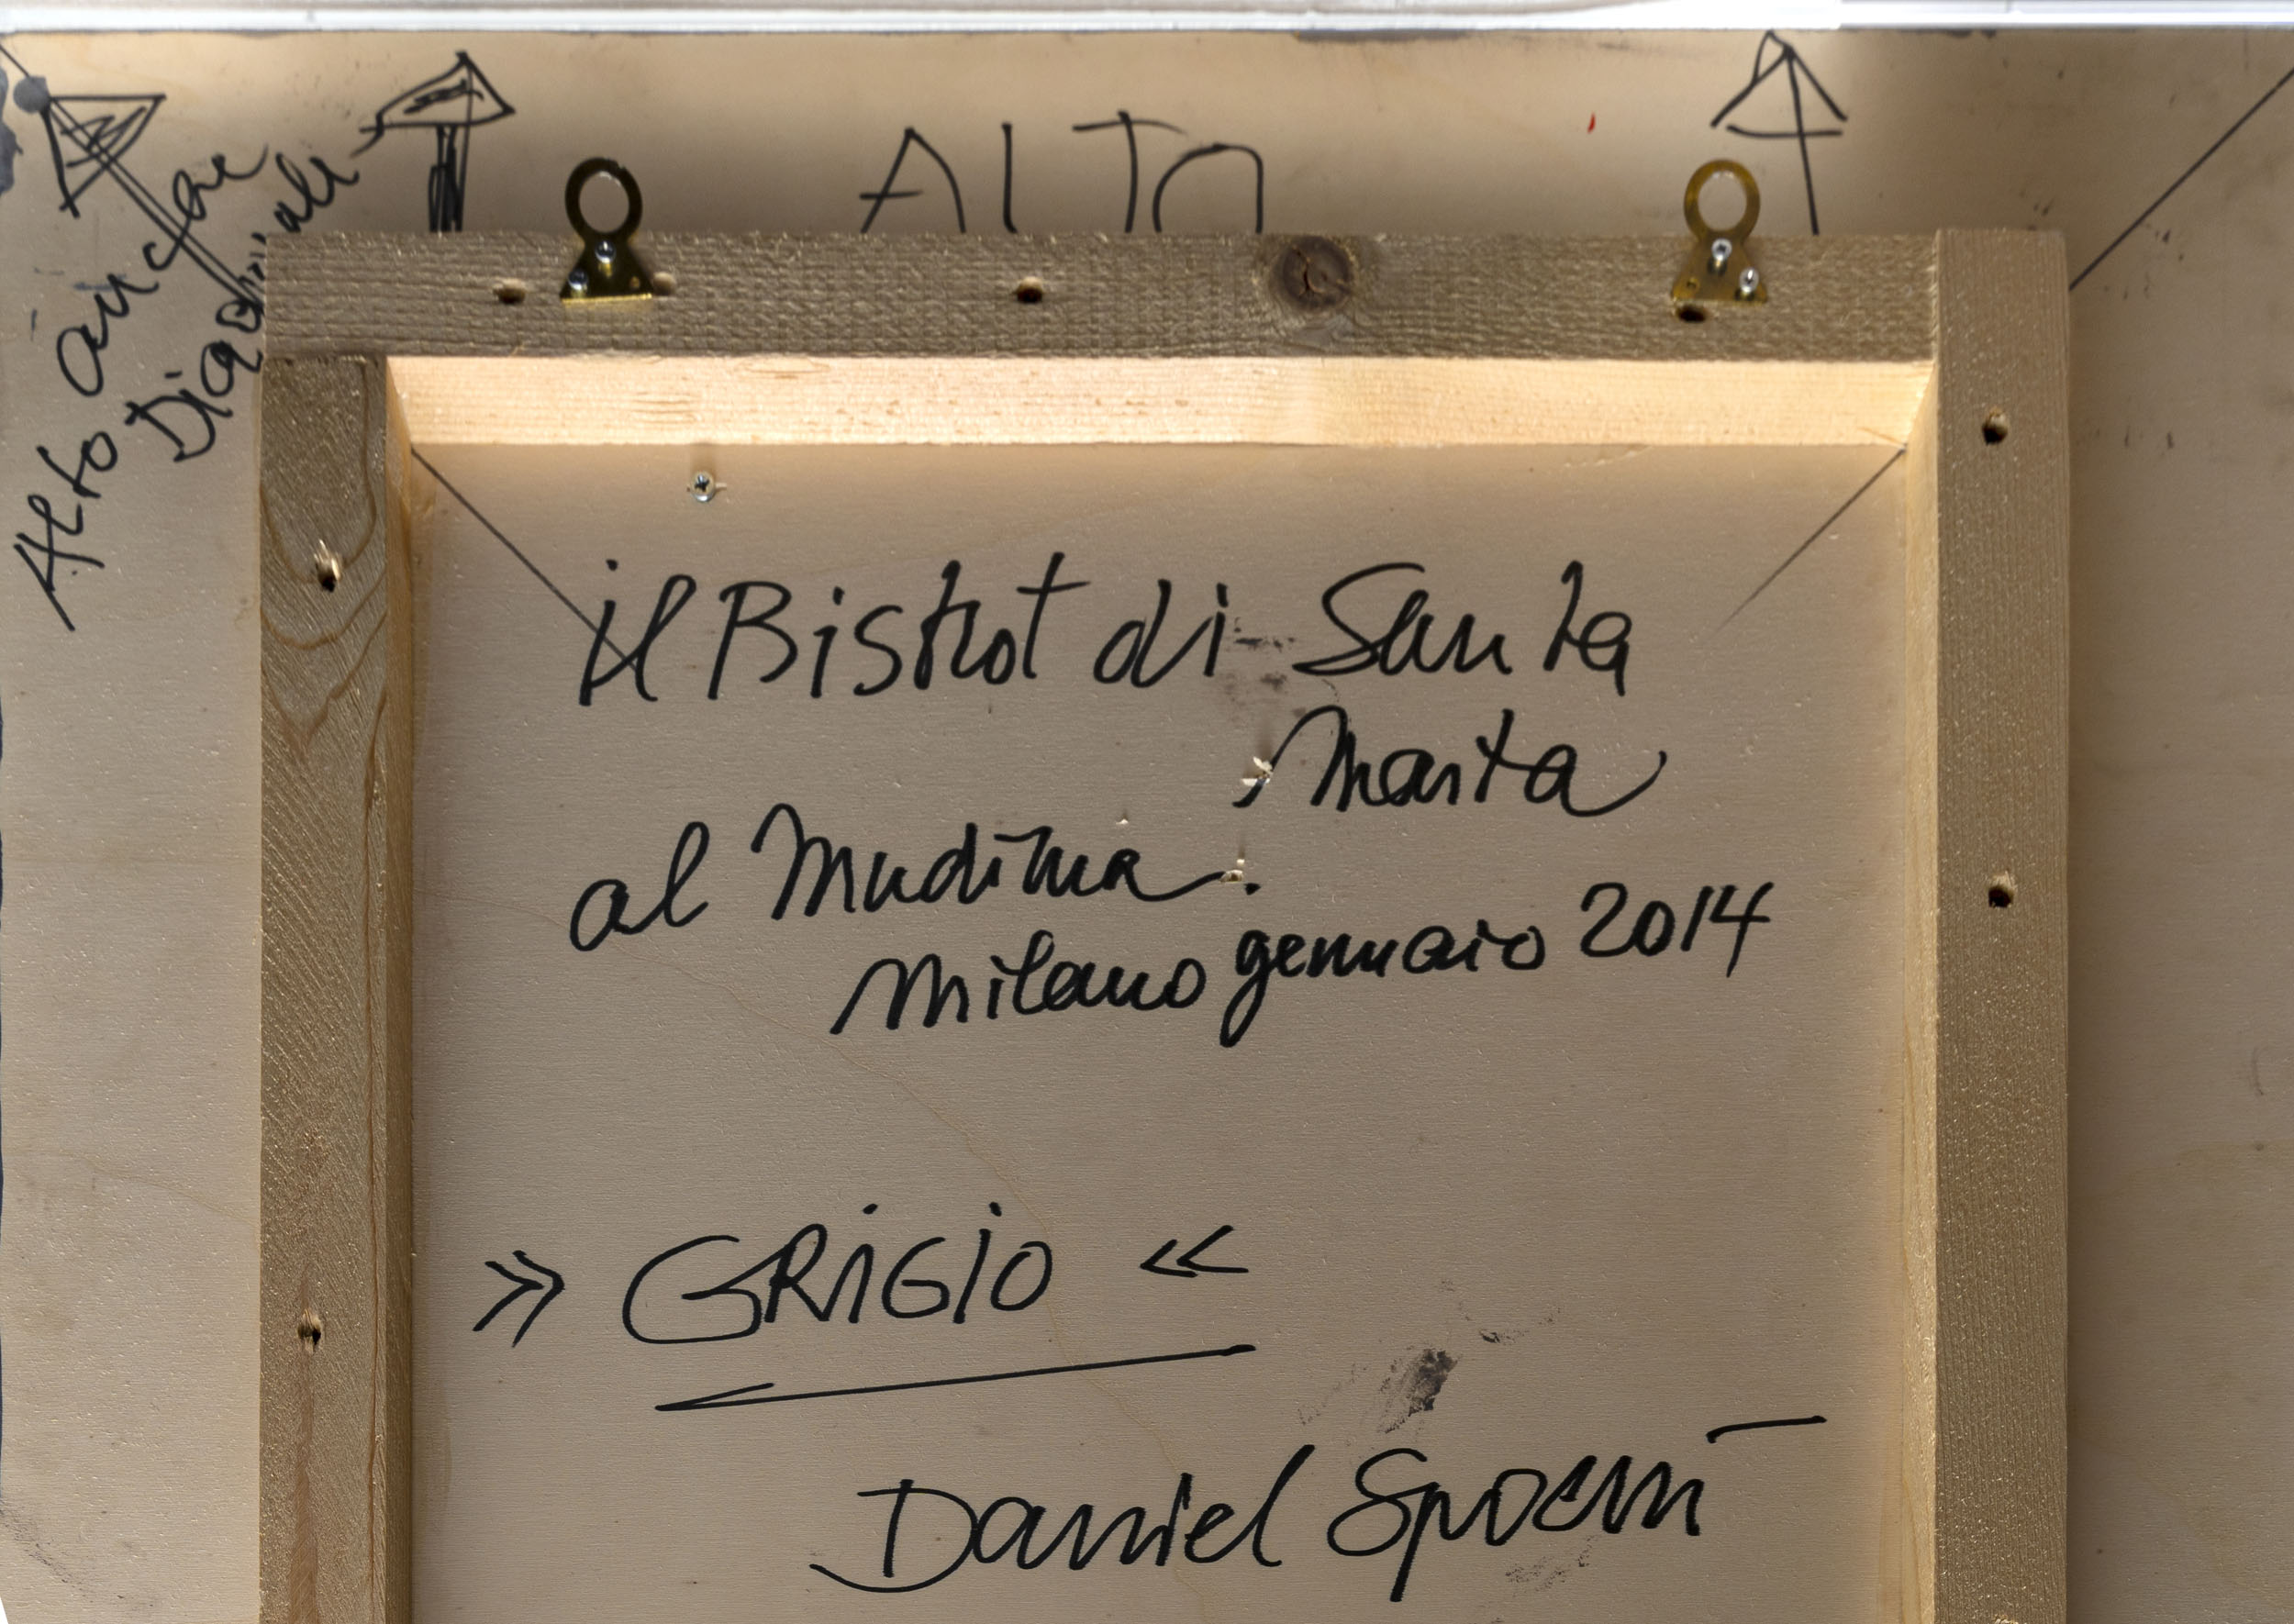 ALTO
Alto anche
Diagonale
il Bistrot di Santa
Marta
al Mudima.
Milano gennaio 2014
» GRIGIO «
Daniel Spoerri